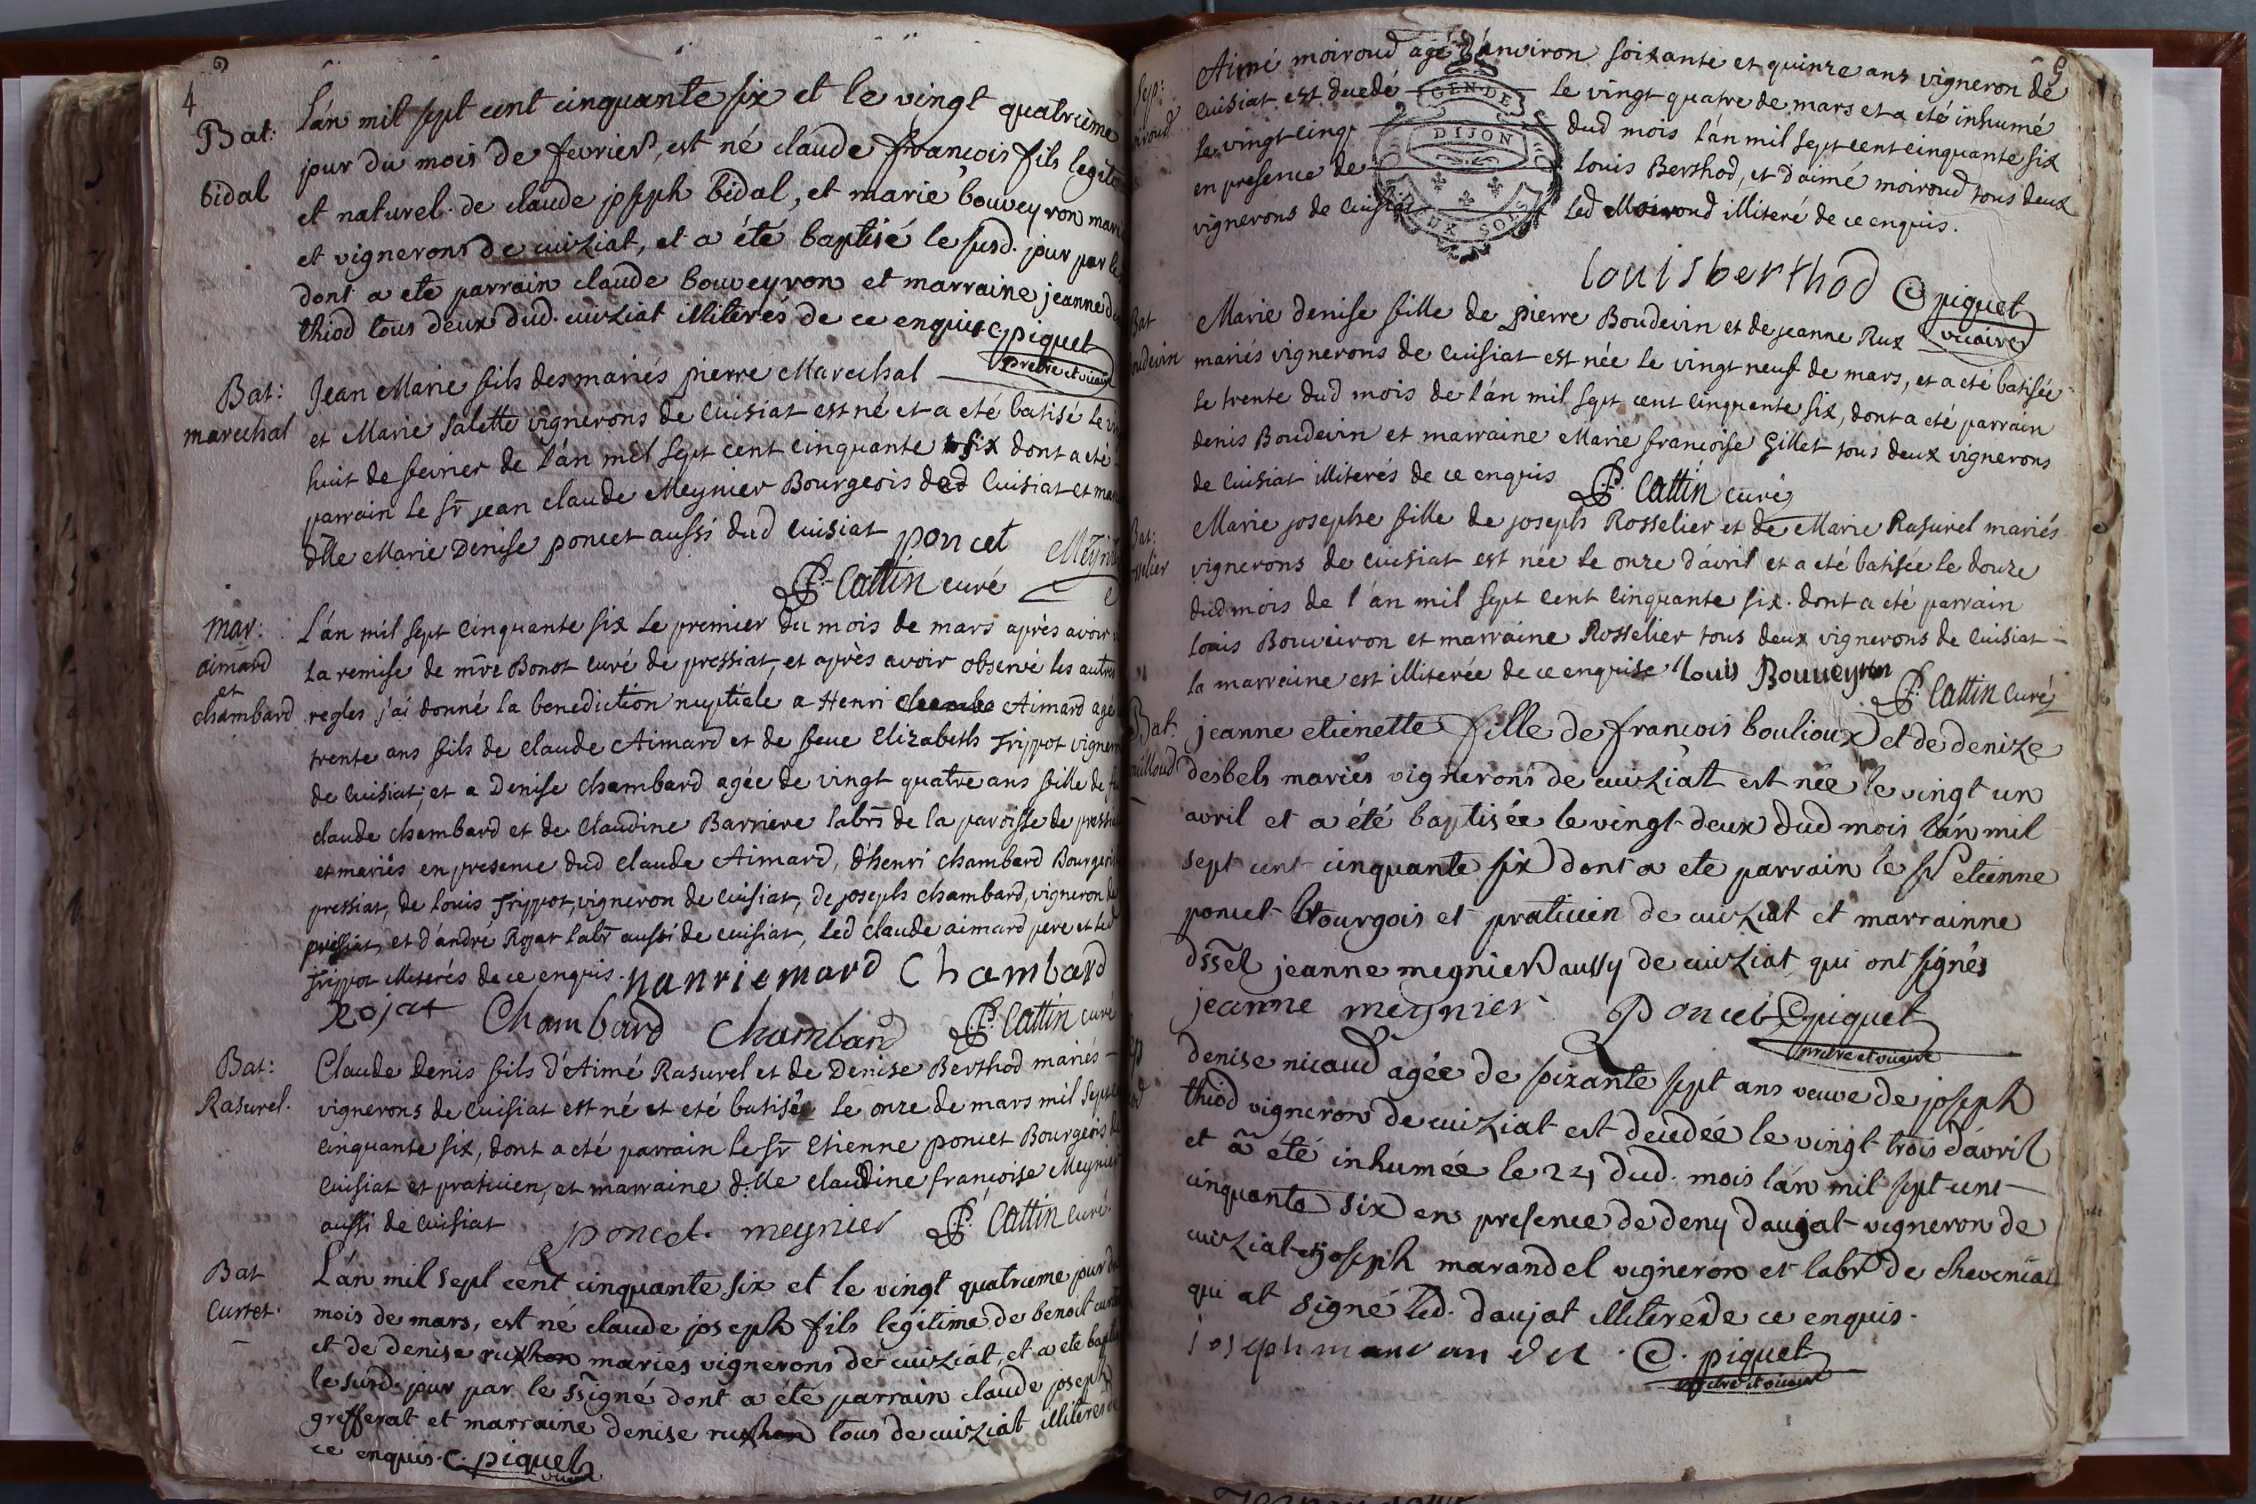 4
Bat:
bidal
L'án mil sept cent cinquante six et le vingt quatrieme
jour du mois de fevrier, est né claude françois fils legit
et naturel de claude joseph bidal, et marie bouveyron mari
et vignerons de cuiziat, et a été baptisé le susd. jour par le
dont a eté parrain claude bouveyron et marraine jeanne d
thiod tous deux dud. cuiziat illiterés de ce enquis C piquet
pretre et vicaire
Bat:
marechal
Jean Marie fils des mariés pierre Marechal
et Marie Salette vignerons de Cuisiat est né et a eté batisé le
huit de fevrier de l'án mil sept cent cinquante six dont a eté
parrain le sr jean claude Meynier Bourgeois dud Cuisiat et ma
dlle Marie Denise poncet aussi dud cuisiat poncet Meyni
P. Cattin curé
mar:
aimard
et
chambard
L'án mil sept cinquante six le premier du mois de mars après avoir
la remise de mre Bonot curé de pressiat, et après avoir observé les autres
regles j'ai donné la benediction nuptiale a Henri Aimard agé
trente ans fils de claude Aimard et de feue Elizabeth Trippot vigneron
de Cuisiat; et a Denise chambard agée de vingt quatre ans fille de f
claude chambard et de Claudine Barriere labrs de la paroisse de pressia
et mariés en presence dud claude Aimard, d'henri chambard Bourgeois
pressiat, de louis Trippot, vigneron de cuisiat, de joseph chambard, vigneron de
pressiat, et d'andré Rojat labr aussi de cuisiat, led claude aimard pere et led
Trippot illiterés de ce enquis. hanri emard Chambard
Rojat Chambard Chambard P. Cattin curé
Bat:
Rasurel.
Claude Denis fils d'Aimé Rasurel et de Denise Berthod mariés
vignerons de Cuisiat est né et eté batisé le onze de mars mil sept
cinquante six, dont a eté parrain le sr Etienne poncet Bourgeois de
Cuisiat et praticien, et marraine d.lle claudine françoise Meynier
aussi de Cuisiat poncet. meynier P. Cattin curé.
Bat
Curtet.
L'án mil sept cent cinquante six et le vingt quatrieme jour du
mois de mars, est né claude joseph fils legitime de benoit curt
et de denise ruxhon maries vignerons de cuiziat, et a eté bapti
le susd. jour par le ssigné dont a été parrain claude joseph
grefferat et marraine denise ruxhon tous de cuiziat illiteres de
ce enquis. C. piquet
vicaire
5
Sep:
iroud
Aimé moiroud agé d'environ soixante et quinze ans vigneron de
Cuisiat est decedé le vingt quatre de mars et a été inhumé
le vingt cinq dud mois l'án mil sept cent cinquante six
en presence de louis Berthod, et d'aimé moiroud tous deux
vignerons de Cuisiat led Moiroud illiteré de ce enquis.
GEN. DE
DIJON
DEUX SOLS
louis berthod C piquet
vicaire
Bat
oudevin
Marie denise fille de pierre Boudevin et de jeanne Rux
mariés vignerons de Cuisiat est née le vingt neuf de mars, et a eté batisée
le trente dud mois de l'án mil sept cent cinquante six, dont a eté parrain
denis Boudevin et marraine Marie françoise Gillet tous deux vignerons
de Cuisiat illiterés de ce enquis P. Cattin curé
Bat:
selier
Marie josephe fille de joseph Rosselier et de Marie Rasurel mariés
vignerons de cuisiat est née le onze d'avril et a eté batisée le douze
dud mois de l'án mil sept cent cinquante six. dont a eté parrain
louis Bouveiron et marraine Rosselier tous deux vignerons de Cuisiat
la marraine est illiterée de ce enquise louis Bouveyron
P. Cattin curé
Bat.
uilloud
jeanne etienette fille de françois boulioux et de denize
desbels mariés vignerons de cuiziat est née le vingt un
avril et a été baptisée le vingt deux dud mois l'án mil
sept cent cinquante six dont a ete parrain le sr etienne
poncet bourgois et praticien de cuiziat et marrainne
dsselle jeanne megnier aussy de cuiziat qui ont signés
jeanne meynier Poncet C piquet
pretre et vicaire
denise nicaud agée de soixante sept ans veuve de joseph
thiod vigneron de cuiziat est decedée le vingt trois d'avril
et a été inhumée le 24 dud. mois l'án mil sept cent
cinquante six en presence de deny daujat vigneron de
cuiziat et joseph marandel vigneron et labr de cheveniat
qui at signé led. daujat illiteré de ce enquis.
joseph marandel C. piquet
pretre et vicaire